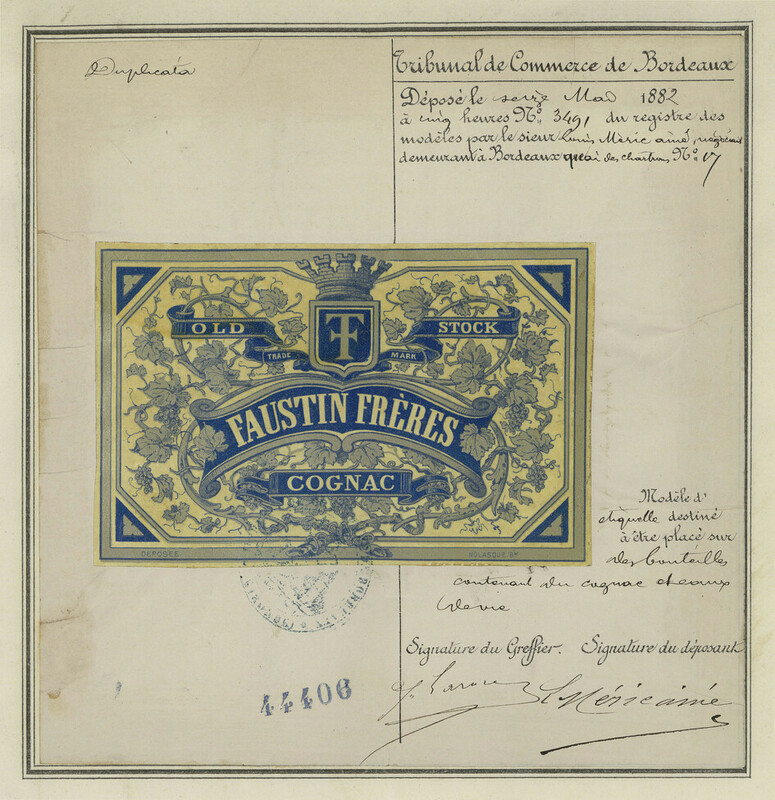 Duplicata
Tribunal de Commerce de Bordeaux
Déposé le seize Mai 1882
à cinq heures N° 3491 du registre des
modèles par le sieur Louis Mèric ainé, négociant
demeurant à Bordeaux quai des chartrons N° 17
OLD STOCK
TRADE MARK
FAUSTIN FRÈRES
COGNAC
DEPOSÉE
Modèle d'
etiquette destiné
à être placé sur
des bouteilles
contenant du cognac et eaux
de vie
Signature du Greffier. Signature du déposant
L Méric ainé
44406